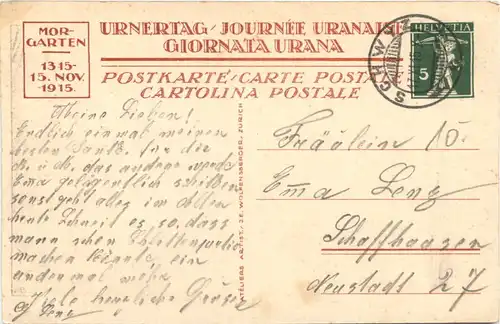 MOR-
GARTEN
1315-
15. NOV.
-1915.
URNERTAG / JOURNÉE URANAISE
GIORNATA URANA
POSTKARTE / CARTE POSTALE
CARTOLINA POSTALE
HELVETIA
5
SCHWYZ
Meine Lieben!
Endlich einmal meinen
besten Dank für die
K. u. M. das andere werde
Ema gelegentlich schicken
sonst geht alles im alten
heute schneit es so, dass
man schon Schlittenpartie
machen könnte ein
andermal mehr
Viele herzliche Grüsse
Lenz
ATELIERS ARTIST. J.E. WOLFENSBERGER, ZURICH
Fräulein
Ema Lenz
Schaffhausen
Neustadt 27